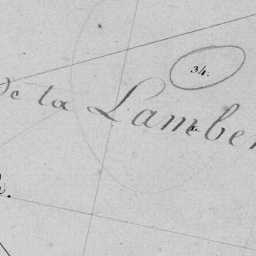 34.
De la Lamber